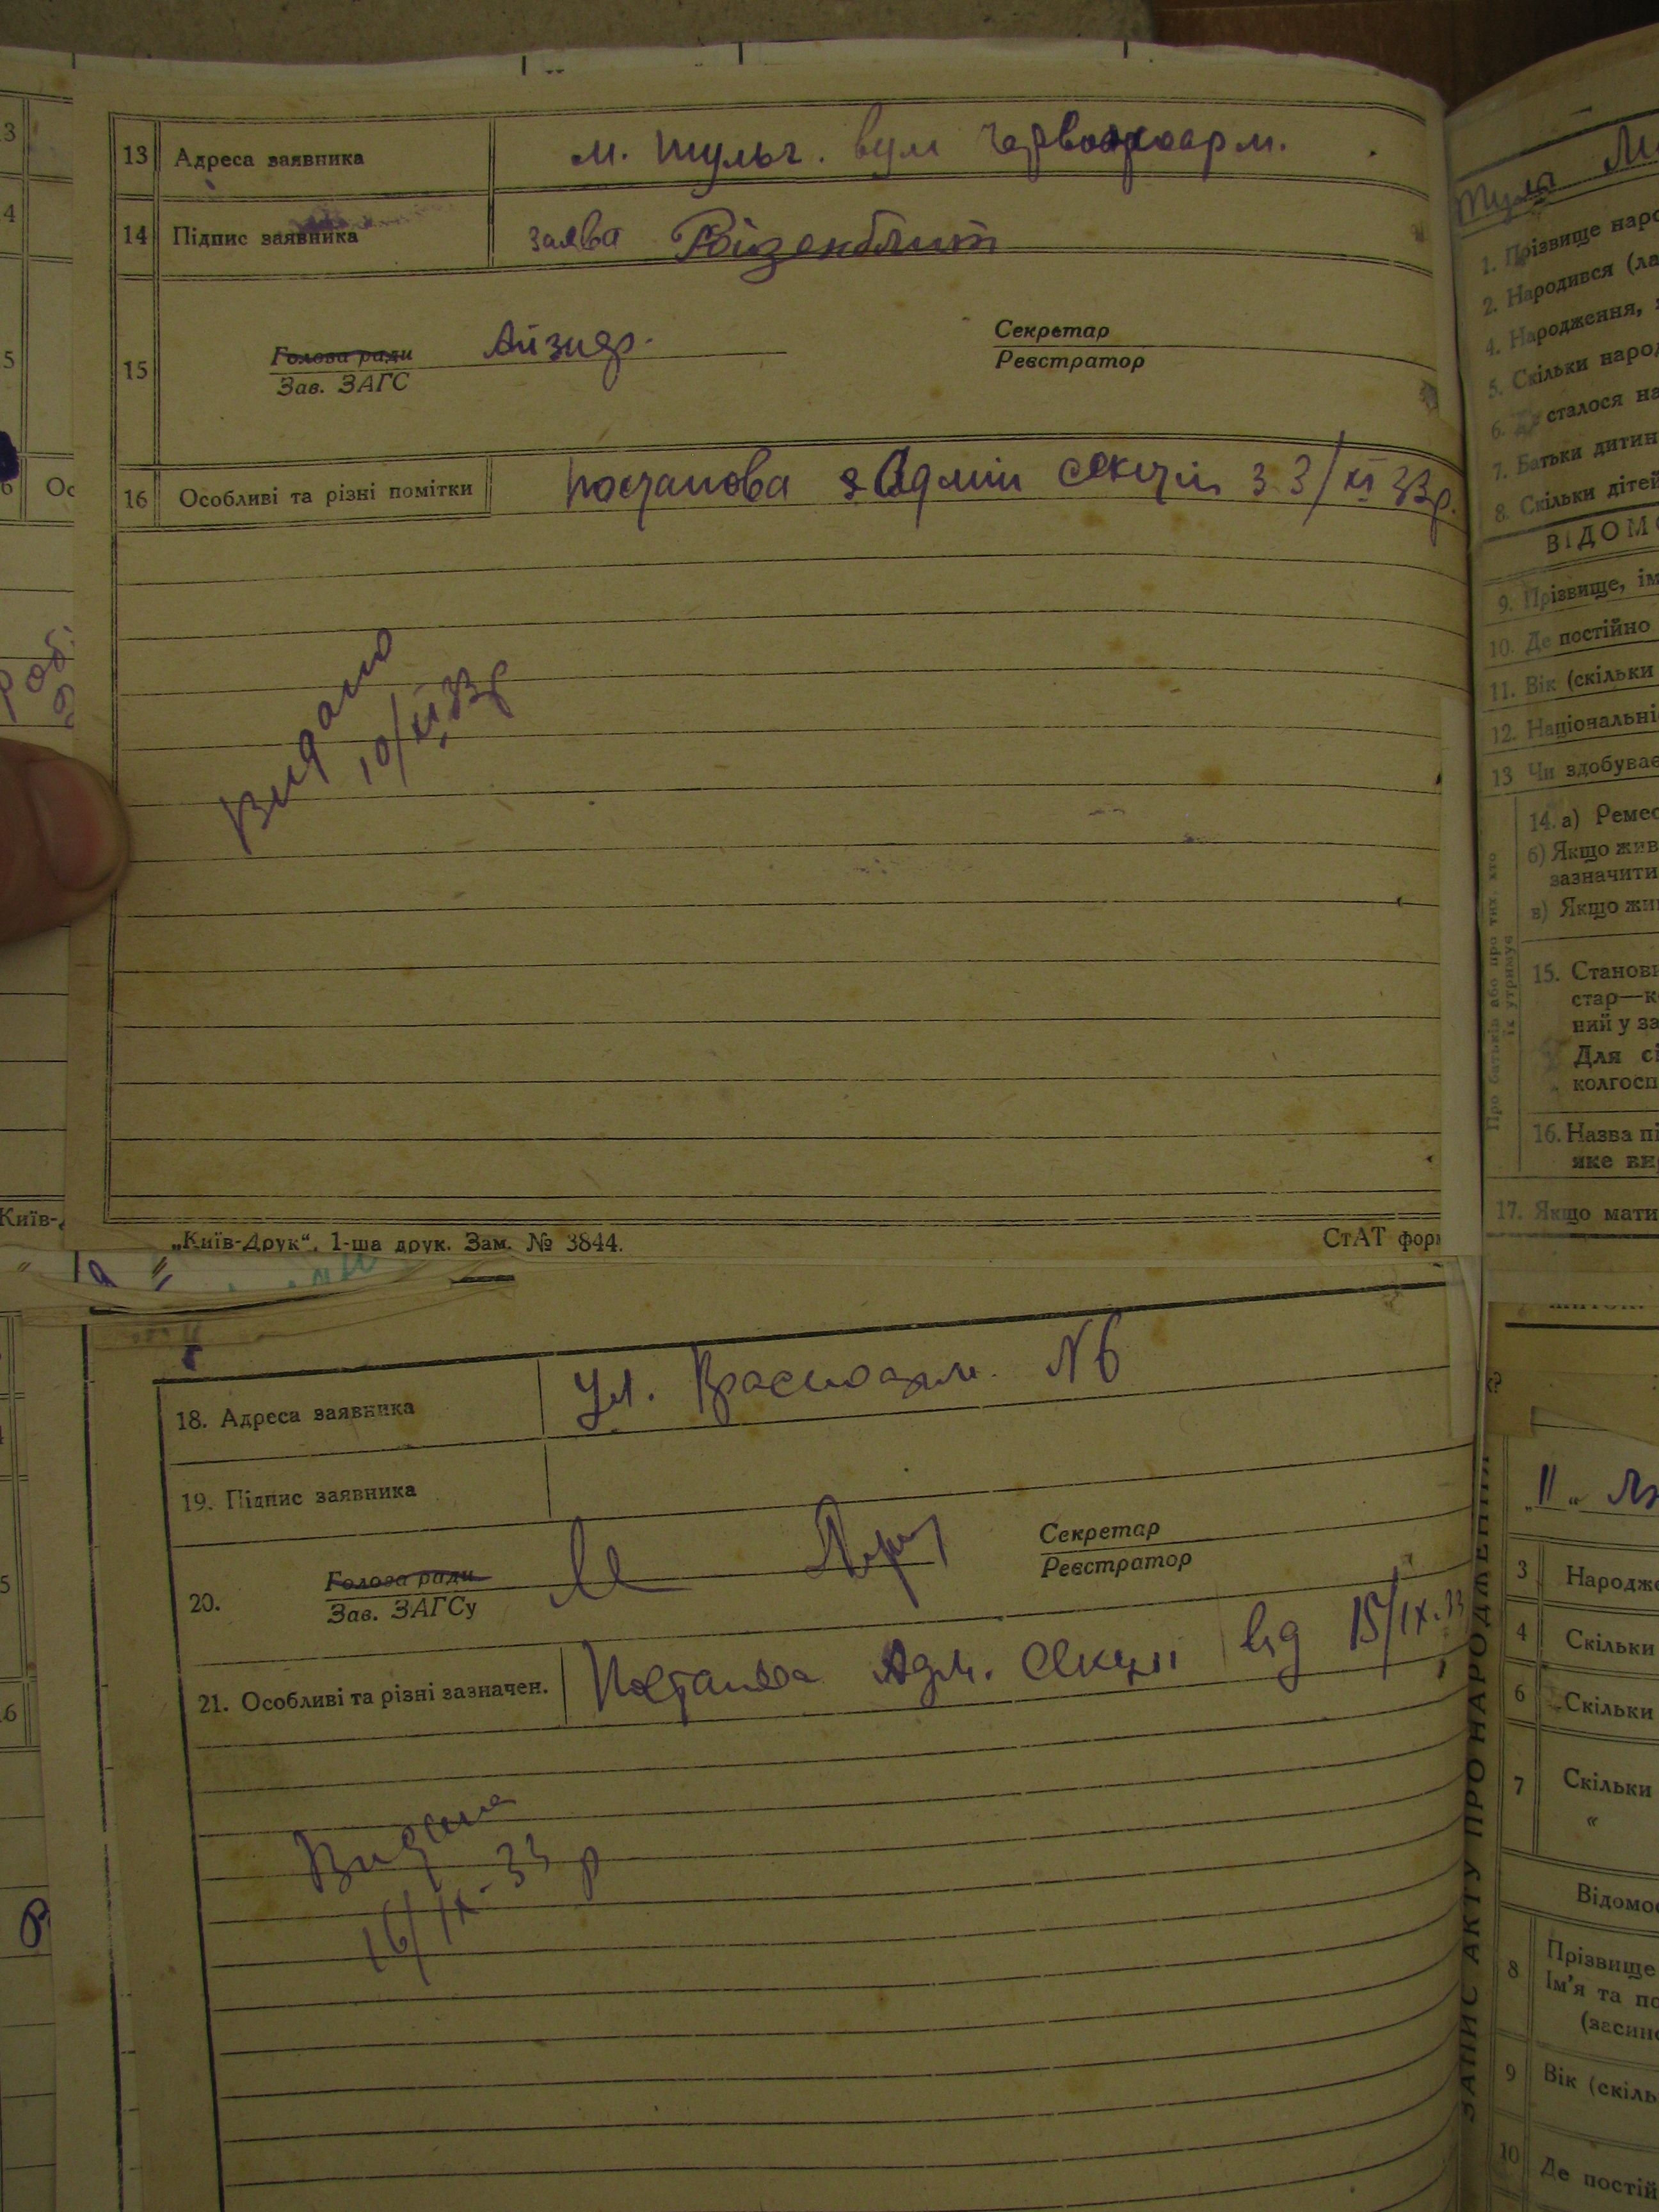 13 Адреса заявника м. Тульч. вул Червоноарм.
14 Підпис заявника заява Ройзенблит
15 Голова ради
Зав. ЗАГС
Секретар
Реєстратор
16 Особливі та різні помітки постанова Адмін секції з 3/XI 33р.
Видано
10/XI 33р
„Київ-Друк“, 1-ша друк. Зам. № 3844.
СтАТ фор
18. Адреса заявника Ул. Красноарм. N 6
19. Підпис заявника
20. Голова ради
Зав. ЗАГСу
Секретар
Реєстратор
21. Особливі та різні зазначен. Постанова Адм. Секції від 15/IX-33
Видана
16/IX-33 р
3
4
5
Ос
Київ-
1. Прізвище наро
2. Народився (ла
4. Народження,
5. Скільки народ
6. сталося на
7. Батьки дитин
8. Скільки дітей
ВІДОМО
9. Прізвище, ім
10. Де постійно
11. Вік (скільки
12. Національні
13 Чи здобуває
14. а) Ремес
б) Якщо жив
зазначити
в) Якщо жи
Про батьків або про тих, хто
їх утримує
15. Станови
стар—к
ний у за
Для сі
колгосп
16. Назва пі
яке ви
17. Якщо мати
ЗАПИС АКТУ ПРО НАРОДЖЕННЯ
„11“
3 Народже
4 Скільки
6 Скільки
7 Скільки
“
Відомос
8 Прізвище
Ім'я та по
(засино
9 Вік (скіль
10 Де постій